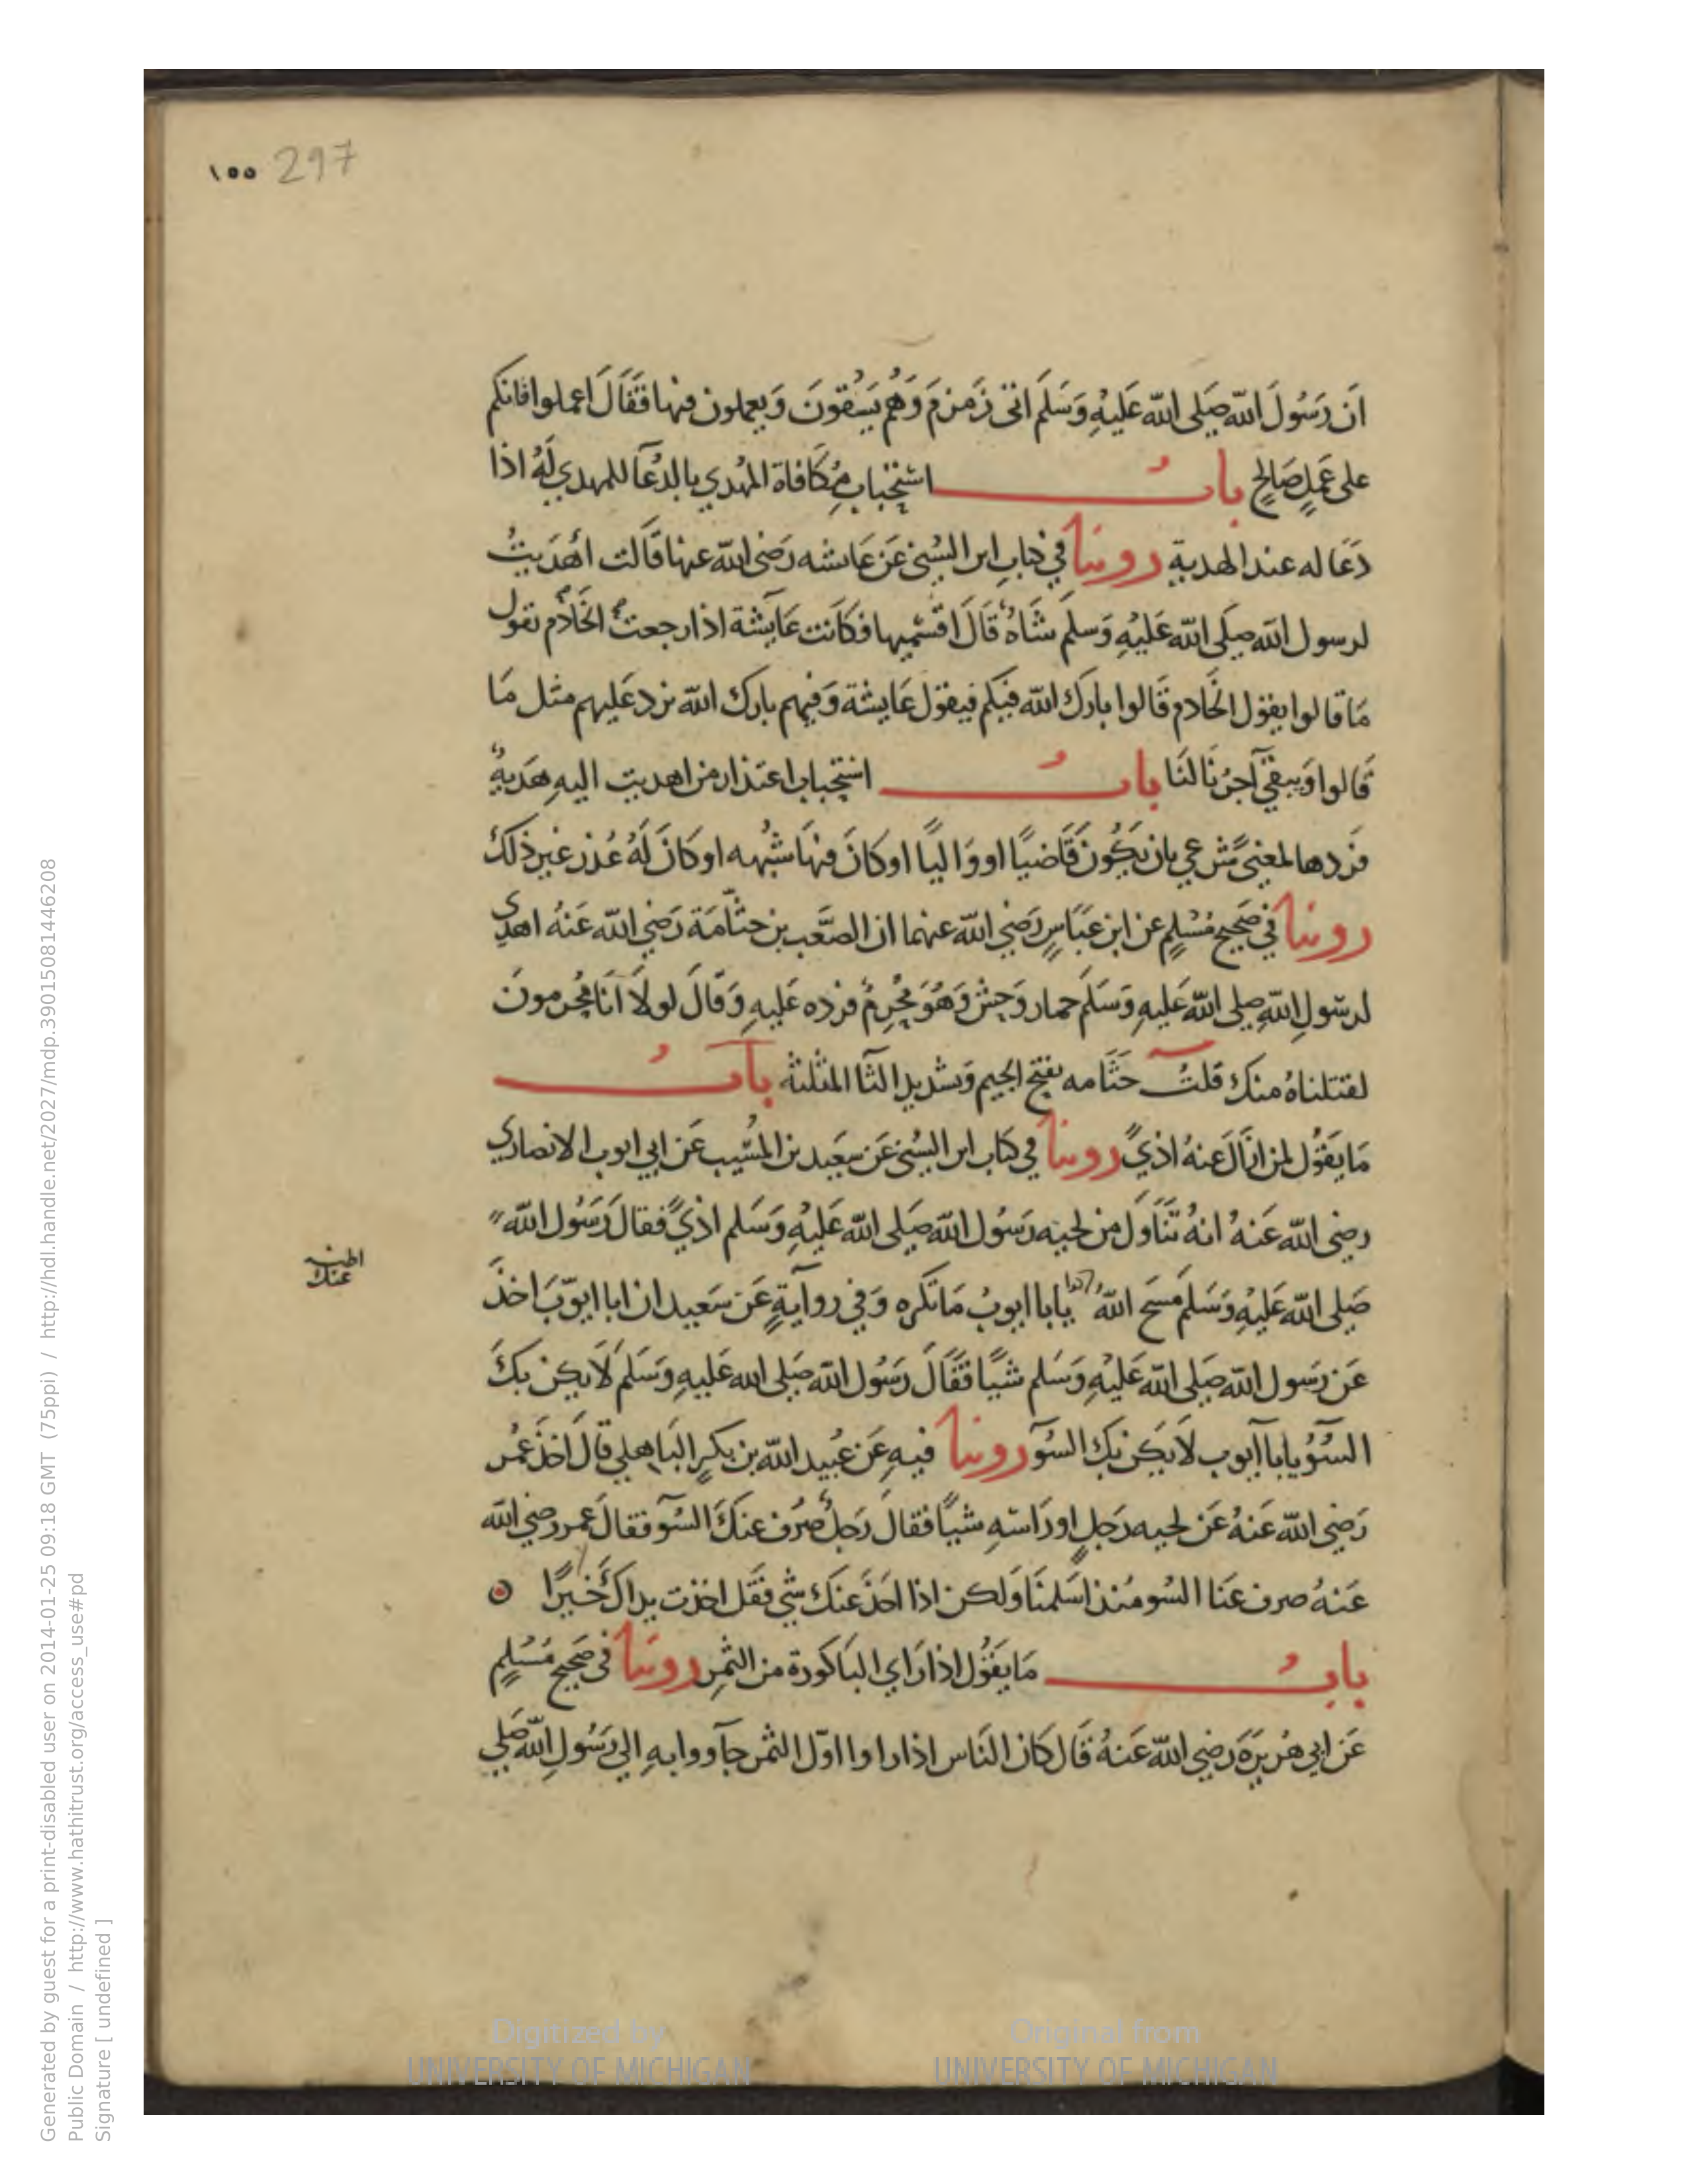 ١٥٥ 297
اَن رَسُولَ اللّه صَلى اللّه عَليْهِ وَسَلمَ اتى زَمزمَ وَهُم يَسْقونَ وَيعملون فيها فَقَالَ اعملوا فانكم
على عَمَلٍ صَالحٍ بابُ استحْبابِ مُكَافاة المُهْدي بالدُعَآ للمهدي لَهُ اذا
دَعَا له عند الهدية روينا في كتابِ ابن السُني عَن عَايشه رَضى اللّه عنها قَالت اُهْدَيتْ
لرسول اللّه صَلى اللّه عَليْهِ وَسلمَ شَاةٌ قَالَ اقسْميها فكَانت عَايَشة اذا رجعتْ الخَادم تقول
مَا قالوا يقول الخَادم قَالوا بارَك اللّه فيكم فيقول عَايشة وَفيهم بارك اللّه نرد عَليهم مثل مَا
قَالوا وَيبقىَ آجرُنَا لنَا بابُ استحْباب اعتذار من اهديت اليهِ هَديةٌ
فردها لمعنىً شرعي بان يَكُون قَاضيًا او وَاليًا او كانَ فيهَا شبُهه او كانَ لَهُ عُذر غير ذلكَ
روينا في صَحيح مُسْلمٍ عن ابن عَبَاسٍ رَضي اللّه عنهما ان الصَّعب بن جثَّامَة رَضي اللّه عَنهُ اهدى
لرسُولِ اللّهِ صلى اللّه عَليهِ وَسَلمَ حمار وَحِش وَهُوَ مُحْرِمٌ فرده عَليهِ وَقَالَ لولَا اَنَا مُحْرمونَ
لقبلناهُ منكَ قلتُ جَثَّامه بفتح الجيم وَتشديد الثآ المثلثة بابُ
مَا يقَوُل لمن ازَالَ عنهُ اذيً روينا في كتاب ابن السُني عَن سَعَيد بن المُسَيب عَن ابي ايوب الانصاري
رضى اللّه عَنهُ انهُ تنَاوَلَ من لحيه رَسُول اللّه صَلى اللّه عَليْهِ وَسَلم اذيً فقالَ رَسُول اللّه
صَلى اللّه عَليْهِ وَسَلمَ مَسَحَ اللّهُ يابا ايوبُ مَا تكره وَفي روآيةٍ عَن سَعيد ان ابا ايوّبَ اخذَ
اظنه
عنك
عَن رَسول اللّه صَلى اللّه عَليْهِ وَسَلم شيًا فقَالَ رَسُول اللّه صَلى الله عَليهِ وَسَلمَ لَا يكن بكَ
السُّوُ يابا اَيوب لَا يَكن بكَ السُوٓ روينا فيهِ عَن عُبيد اللّه بن بكرٍ البَاهلي قالَ اخَذَ عُمر
رَضي اللّه عَنهُ عَن لحيه رَجلٍ او رَاسهِ شيًا فقالَ رَجلٌ صُرَف عنكَ السُوٓ فقالَ عمر رضي اللّه
عَنهُ صرف عَنا السُو مُنذ اَسلمنَا وَلكن اذا اخذَ عَنكَ شي فقَل اخذت يداكَ خَيرًا
بابُ مَا يقَوُل اذا رَاي البَاكورة من الثمرِ روينا في صَحيحِ مُسْلمٍ
عَن ابي هُريرَةَ رَضي اللّه عَنهُ قَال كانَ النَاس اذا راوا اوّل الثمر جآووا بهِ الى رَسُولِ اللّه صَلي
Generated by guest for a print-disabled user on 2014-01-25 09:18 GMT (75ppi) / http://hdl.handle.net/2027/mdp.39015081446208
Public Domain / http://www.hathitrust.org/access_use#pd
Signature [ undefined ]
Digitized by
UNIVERSITY OF MICHIGAN
Original from
UNIVERSITY OF MICHIGAN